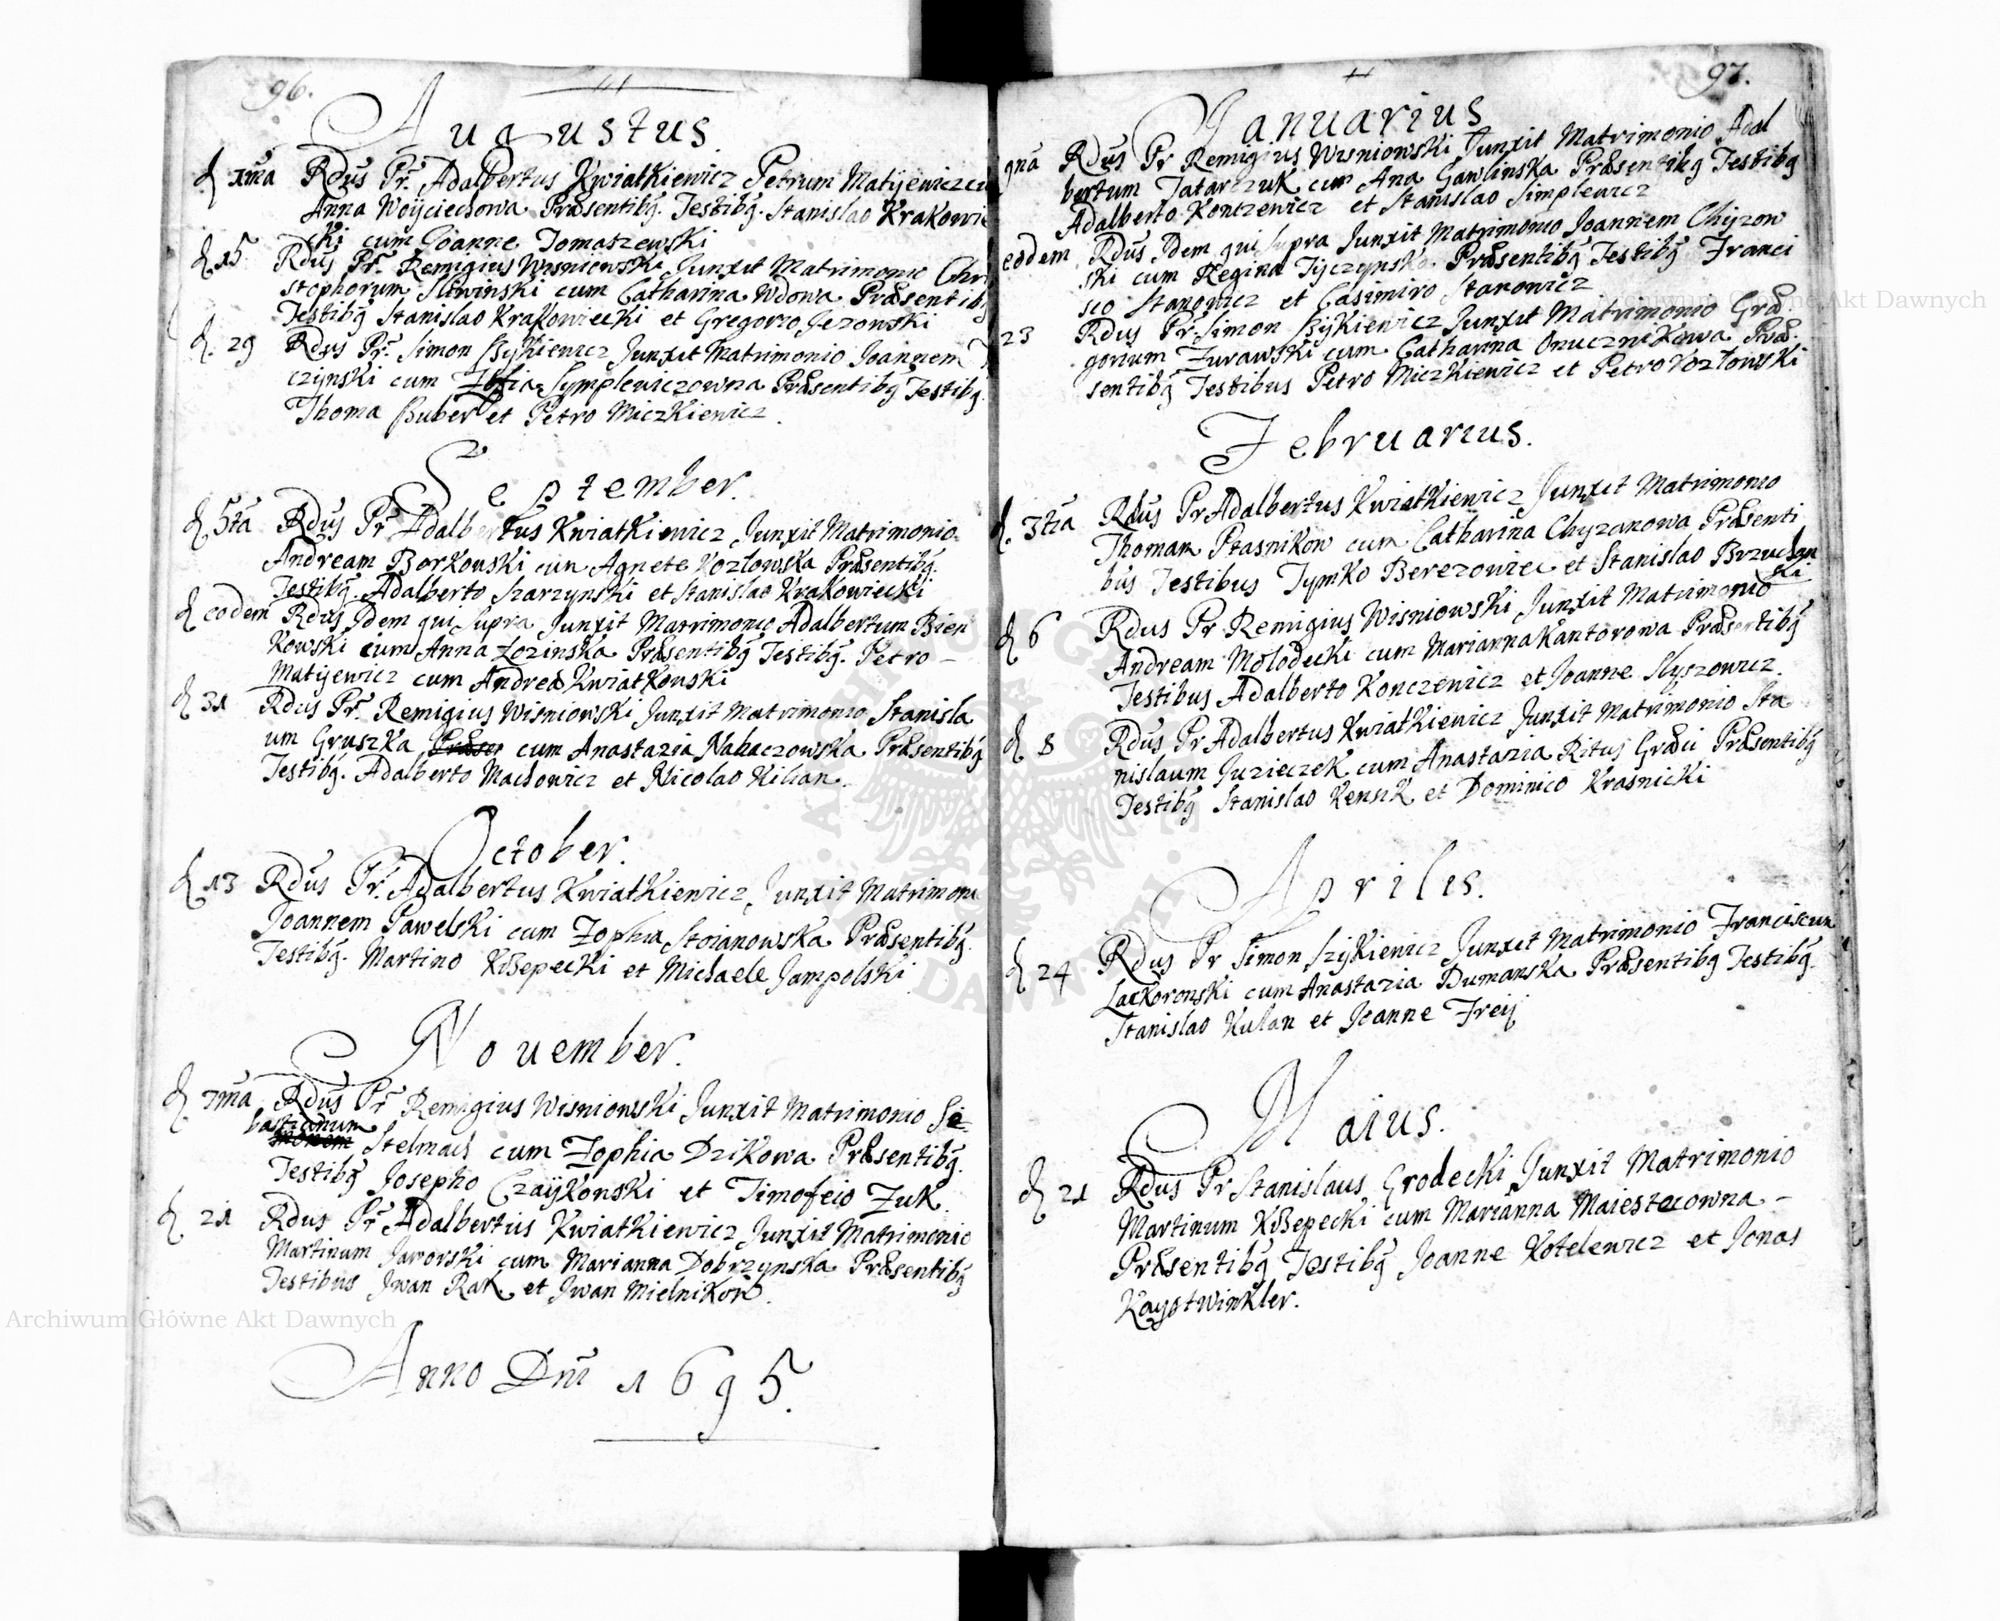 96.
Augustus.
d 1ma Rdus Pr. Adalbertus Kwiatkiewicz Petrum Matyiewicz cu
Anna Woyciechowa Præsentibg. Testibg. Stanislao Krakowie
cki cum Joanne Tomaszewski
d. 15 Rdus Pr. Remigius Wisniowski Junxit Matrimonio Chri
stophorum Sliwinski cum Catharina Wdowa Præsentibg
Testibg Stanislao Krakowiecki et Gregorio Jezowski
d. 29 Rdus Pr. Simon Szykiewicz Junxit Matrimonio Joannem
czynski cum Zofia Symplewiczowna Præsentibg Testibg.
Thoma Szuber et Petro Miczkiewicz.
September.
d 5ta Rdus Pr Adalbertus Kwiatkiewicz Junxit Matrimonio
Andream Borkowski cun Agnete Kozlowska Præsentibg.
Testibg. Adalberto Szarzynski et Stanislao Krakowiecki
d eodem Rdus Idem qui Supra Junxit Matrimonio Adalbertum Bien
kowski cum Anna Lozinska Præsentibg Testibg. Petro –
Matyewicz cum Andrea Kwiatkowski
d 31 Rdus Pr. Remigius Wisniowski Junxit Matrimonio Stanisla
um Gruszka cum Anastazia Nahaczowska Præsentibg
Testibg. Adalberto Machowicz et Nicolao Kilian.
October.
d 13 Rdus Pr. Adalbertus Kwiatkiewicz Junxit Matrimoni
Joannem Pawelski cum Zophia Stoianowska Præsentibg.
Testibg. Martino Krzepecki et Michaele Jampolski
November.
d. 7ma Rdus Pr Remigius Wisniowski Junxit Matrimonio Se
bastianum
Stelmach cum Zophia Dzikowa Præsentibg.
Testibg Josepho Czaykowski et Timofeio Zuk.
d 21 Rdus Pr Adalbertus Kwiatkiewicz Junxit Matrimonio
Martinum Jaworski cum Marianna Dobrzynska Præsentibg
Testibus Jwan Rak et Jwan Mielnikow.
Anno Dni 1695.
97.
Januarius
9na Rdus Pr Remigius Wisniowski Junxit Matrimonio Adal
bertum Tatarczuk cum Ana Gawlinska Præsentibg Testibg
Adalberto Konczewicz et Stanislao Simplewicz
eodem Rdus Idem qui Supra Junxit Matrimonio Joannem Chyzow
ski cum Regina Tyczynska Præsentibg Testibg Franci
sco Stanowicz et Casimiro Stanowicz
23 Rdus Pr. Simon Szykiewicz Junxit Matrimonio Græ
gorium Zurawski cum Catharina Onucznikowa Præ
sentibg Testibus Petro Miczkiewicz et Petro Kozlowski
Februarius.
d. 3tia Rdus Pr Adalbertus Kwiatkiewicz Junxit Matrimonio
Thomam Ptasnikow cum Catharina Chyzanowa Præsenti
bus Testibus Tymko Berezowiec et Stanislao Brzuchan
ski
d 6 Rdus Pr Remigius Wisniowski Junxit Matrimonio
Andream Molodecki cum Marianna Kantorowa Præsentibg
Testibus Adalberto Konczewicz et Joanne Slyszowicz.
d 8 Rdus Pr Adalbertus Kwiatkiewicz Junxit Matrimonio Sta
nislaum Juzieczek cum Anastazia Ritus Græci Præsentibg
Testibg Stanislao Kensik et Dominico Krasnicki
Aprilis.
d 24 Rdus Pr Simon Szykiewicz Junxit Matrimonio Franciscum
Lackoronski cum Anastazia Dumanska Præsentibg Testibg.
Stanislao Kulan et Joanne Freij
Maius.
d. 21 Rdus Pr Stanislaus Grodecki Junxit Matrimonio
Martinum Krzepecki cum Marianna Maiestecowna –
Præsentibg Testibg Joanne Kotelewicz et Jonas
Kaystwinkler.
Archiwum Główne Akt Dawnych
Archiwum Główne Akt Dawnych